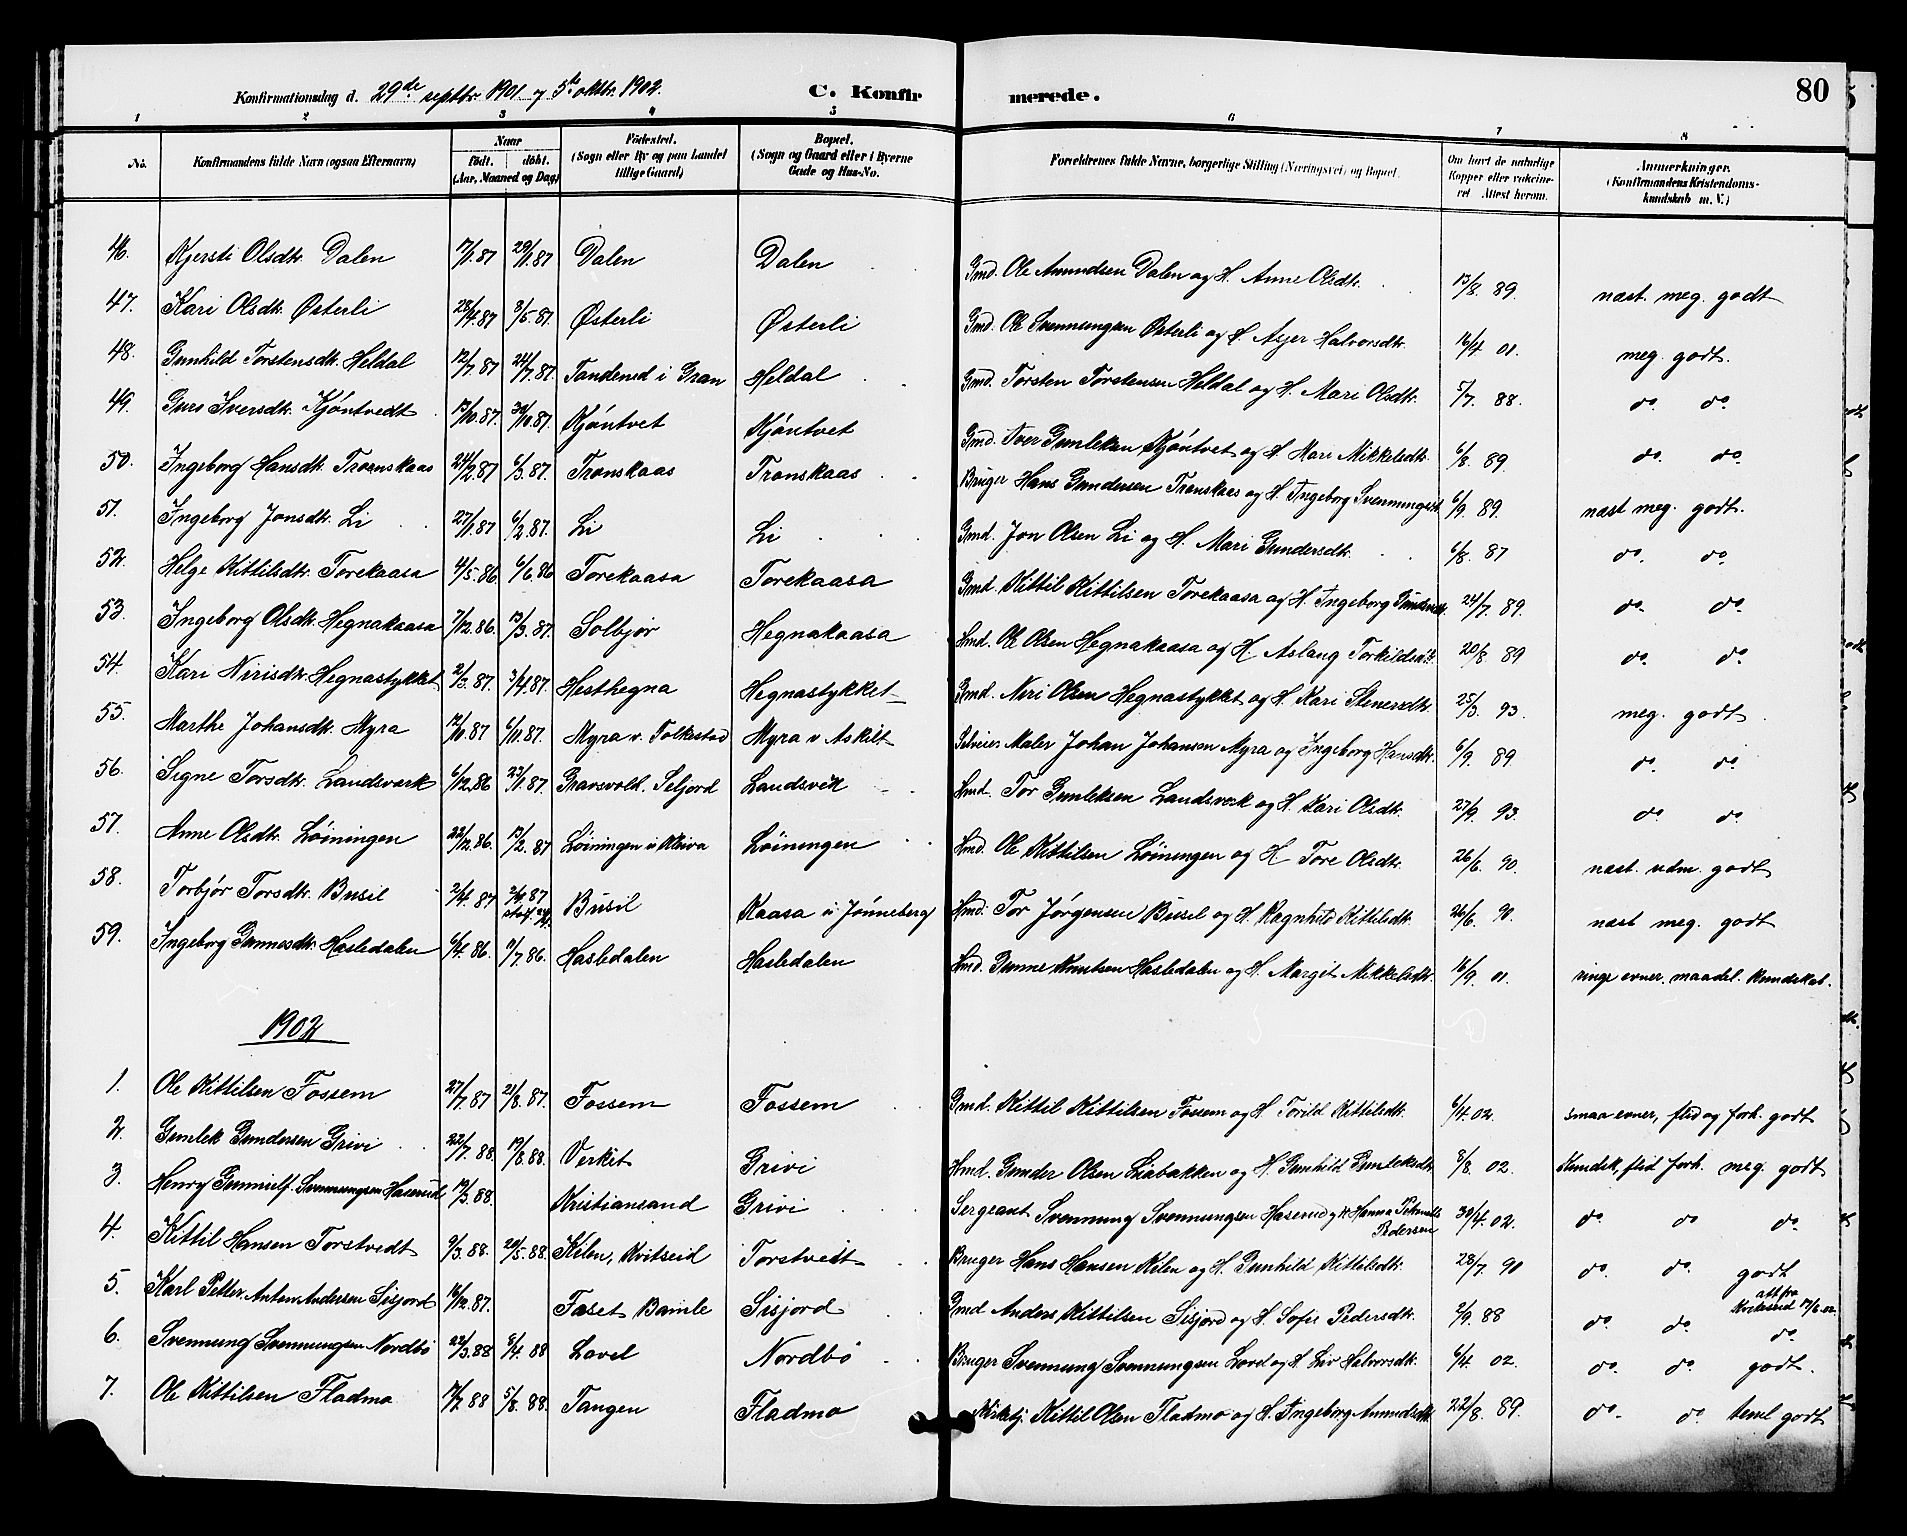 Konfirmationsdag d. 29de septbr 1901 og 5te oktbr. 1902. C. Konfirmerede. 80
1 2 3 4 5 6 7 8
No. Konfirmandens fulde Navn (ogsaa Efternavn) Naar født. døbt. (Aar, Maaned og Dag) Fødested. (Sogn eller By og paa Landet tillige Gaard) Bopæl. (Sogn og Gaard eller i Byerne Gade og Hus-No. Forældrenes fulde Navne, borgerlige Stilling (Næringsvei) og Bopæl. Om havt de naturlige Kopper eller vakcineret Attest herom. Anmerkninger. (Konfirmandens Kristendomskundskab m. V.)
46. Kjersti Olsdtr. Dalen 17/1.87 29/1.87 Dalen Dalen Gmd. Ole Amundsen Dalen og H. Anne Olsdtr. 13/8. 89. næst. meg. godt
47. Kari Olsdtr. Østerli 28/4.87 3/5.87. Østerli Østerli Gmd. Ole Svennungsen Østerli og H. Asjer Halvorsdtr. 16/4 01. meg. godt.
48. Gunhild Torstensdtr. Heldal 12/7.87 24/7.87. Tandened i Gran Heldal Gmd. Torsten Torstensen Heldal og H. Mari Olsdtr. 5/7. 88. do. do.
49. Guro Iversdtr. Kjøntvedt 13/10.87. 30/10.87. Kjøntvet Kjøntvet Gmd. Iver Gunleksen Kjøntvet og H. Mari Mikkelsdtr. 6/8. 89. do. do.
50. Ingeborg Hansdtr. Tronskaas 24/2.87 6/3.87. Tronskaas Tronskaas Bruger Hans Gundersen Tronskaas og H. Ingeborg Svennungsdtr. 6/9. 89. næst meg. godt.
51. Ingeborg Jonsdtr. Li 27/1.87 6/2.87. Li Li Gmd. Jon Olsen Li og H. Mari Gundersdtr. 6/8. 87 do. do.
52. Helge Kittilsdtr. Torekaasa 4/5.86. 6/6.86 Torekaasa Torekaasa Gmd. Kittil Kittilsen Torekaasa og H. Ingeborg 24/7. 89. do. do.
53. Ingeborg Olsdtr. Hegnakaasa 7/12.86. 13/3.87. Solbjør Hegnakaasa Hmd. Ole Olsen Hegnakaasa og H. Aslaug Torkildsdtr. 20/8. 89 do. do.
54. Kari Nirisdtr. Hegnastykket 2/3.87. 3/4.87. Hesthegna Hegnastykket Gmd. Niri Olsen Hegnastykket og H. Kari Stenersdtr. 25/3. 93. meg. godt.
55. Marthe Johansdtr. Myra 12/1.87 6/11.87. Myra v. Folkestad Myra v Askilt Selveier Maler Johan Johansen Myra og Ingeborg Hansdtr. 6/9. 89 do. do.
56. Signe Torsdtr. Landsverk 6/12.86 23/1.87. Gravsvold. Seljord Landsvik Hmd. Tor Gunleksen Landsverk og H. Kari Olsdtr. 27/9. 93. do. do.
57. Anne Olsdtr. Løiningen 22/12.86. 13/2.87 Løiningen u Kleiva Løiningen Hmd. Ole Kittilsen Løiningen og H Tore Olsdtr. 26/6. 90. næst. udm. godt
58. Torbjør Torsdtr. Busil 2/4.87 Busil Kaasa u Jønneberg Hmd. Tor Jørgensen Busel og H. Ragnhild Kittilsdtr. 26/6. 90. næst meg. godt
59. Ingeborg Gunnesdtr. Hasledalen 6/4.86. 11/7.86. Hasledalen Hasledalen Hmd. Gunne Knutsen Hasledalen og H. Margit Mikkelsdtr. 16/9. 01. ringe evner. maadel. kundskab.
1902
1. Ole Kittilsen Fossem 27/7.87 21/8.87. Fossem Fossem Gmd. Kittil Kittilsen Fossem og H. Torild Kittilsdtr. 6/4.02. smaa evner, flid og forh. godt
2. Gunlek Gundersen Grivi 22/7.88. 19/8.88. Verket Grivi Hmd. Gunder Olsen Liabakken og H. Gunhild Gunleksdtr. 8/8. 02. Kundsk, flid forh. meg. godt
3. Henry Gunnulf. Svennungsen Haserud 19/3.88. Kristiansand Grivi Sergeant Svennung Svennungsen Haserud og H. Hanna Pedersen 30/4. 02. do do do.
4. Kittil Hansen Torstvedt 9/3.88. 20/5.88. Kilen, Kvitseid Torstveit Bruger Hans Hansen Kilen og H. Gunhild Kittilsdtr. 28/7. 90 do. do. godt
5. Karl Petter Anton Andersen Sisjord 16/12.87. Faset Bamle Sisjord Gmd Anders Kittilsen Sisjord og H. Sofie Pedersdtr. 2/9. 88 do. do. att fra do.
6. Svennung Svennungsen Nordbø 22/3.88 8/4.88 Lavel Nordbø Bruger Svennung Svennungsen Lovel og H. Liv Halvorsdtr. 6/4. 02. do. do. godt.
7. Ole Kittilsen Fladmo 17/7.88 5/8.88. Tangen Fladmo Kittil Olsen Fladmo og H. Ingeborg Amundsdtr. 22/8. 89. do. do. teml godt